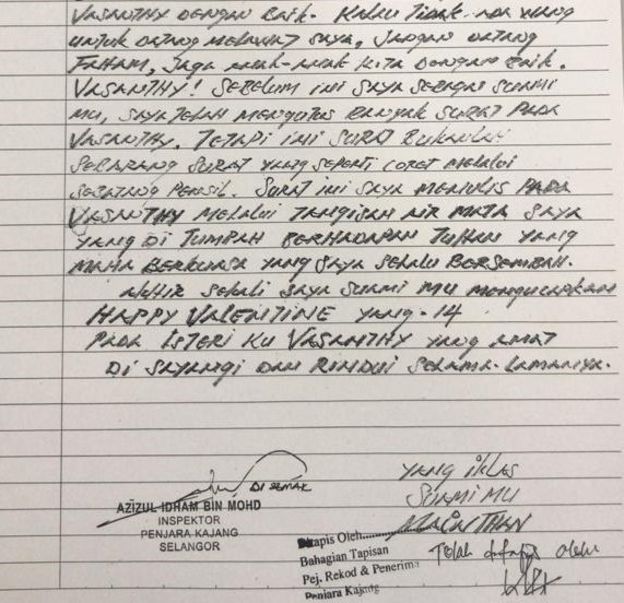 VASANTHY DENGAN BAIK. KALAU TIDAK ADA WANG
UNTUK DATANG MELAWAT SAYA, JANGAN DATANG
FAHAM, JAGA ANAK-ANAK KITA DENGAN BAIK.
VASANTHY! SEBELUM INI SAYA SEBAGAI SUAMI
MU, SAYA TELAH MENGUTUS BANYAK SURAT PADA
VASANTHY. TETAPI INI SURAT BUKANLAH
SEBARANG SURAT YANG SEPERTI CORET MELALUI
SEBATANG PENSIL. SURAT INI SAYA MENULIS PADA
VASANTHY MELALUI TANGISAN AIR MATA SAYA
YANG DI TUMPAH BERHADAPAN TUHAN YANG
MAHA BERKUASA YANG SAYA SELALU BERSEMBAH.
AKHIR SEKALI SAYA SUAMI MU MENGUCAPKAN
HAPPY VALENTINE YANG-14
PADA ISTERI KU VASANTHY YANG AMAT
DI SAYANGI DAN RINDUI SELAMA-LAMANYA.
YANG IKLAS
SUAMI MU
DI SEMAK
AZIZUL IDHAM BIN MOHD
INSPEKTOR
PENJARA KAJANG
SELANGOR
Ditapis Oleh
Bahagian Tapisan
Pej. Rekod & Penerima
Penjara Kajang
Telah ditapis oleh